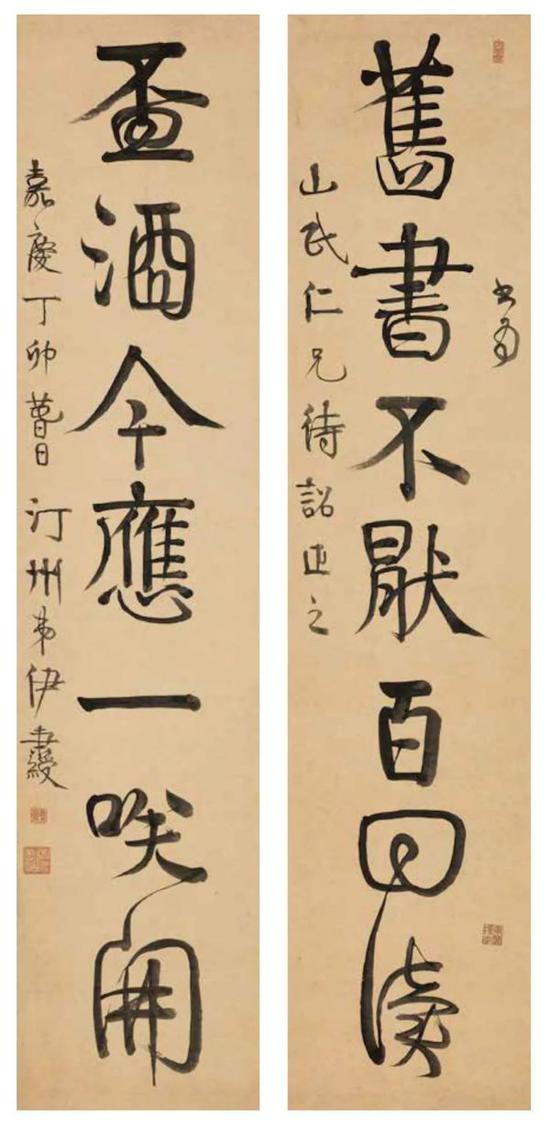 書為
舊書不猒百回讀
山民仁兄待詔之
盃酒今應一咲開
嘉慶丁卯萅日汀州弟伊秉綬